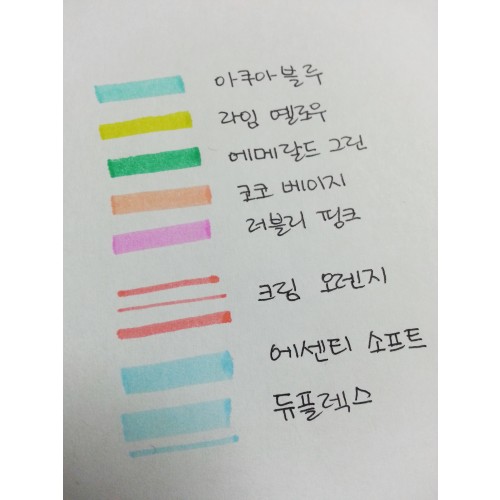 아쿠아블루
라임 옐로우
에메랄드 그린
코코 베이지
러블리 핑크
크림 오렌지
에센티 소프트
듀플렉스